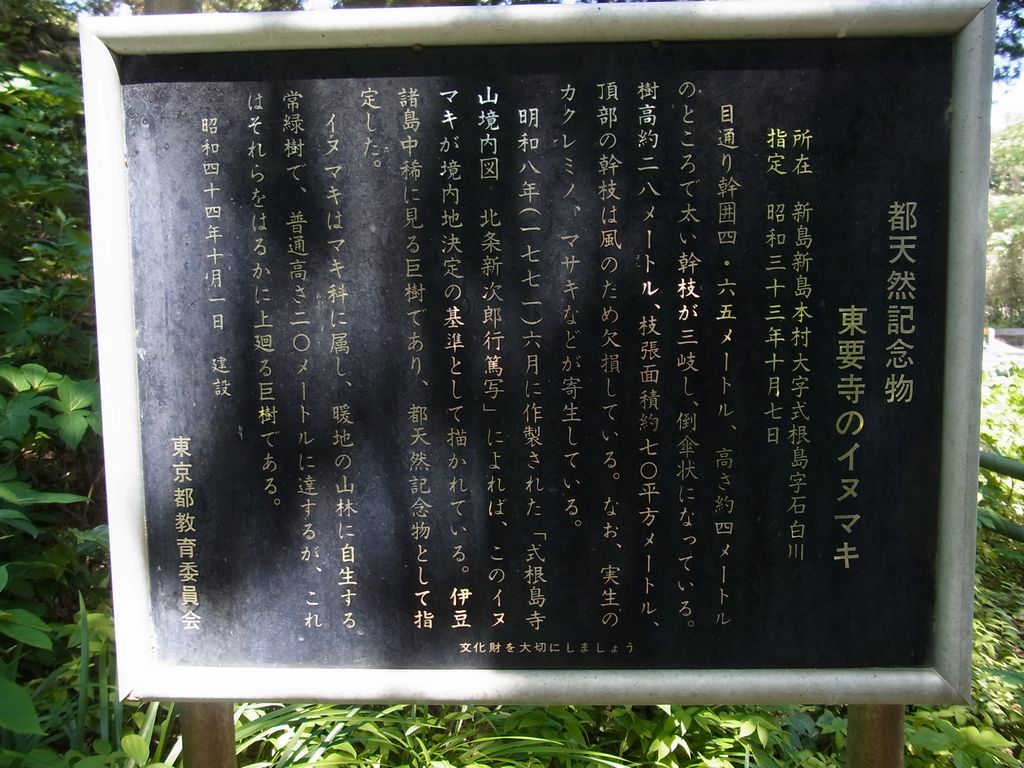 都天然記念物
東要寺のイヌマキ
所在　新島新島本村大字式根島字石白川
指定　昭和三十三年十月七日
目通り幹囲四・六五メートル、高さ約四メートル
のところで太い幹枝が三岐し、倒傘状になっている。
樹高約二八メートル、枝張面積約七〇平方メートル、
頂部の幹枝は風のため欠損している。なお、実生の
カクレミノ、マサキなどが寄生している。
明和八年(一七七一)六月に作製された「式根島寺
山境内図　北条新次郎行篤写」によれば、このイヌ
マキが境内地決定の基準として描かれている。伊豆
諸島中稀に見る巨樹であり、都天然記念物として指
定した。
イヌマキはマキ科に属し、暖地の山林に自生する
常緑樹で、普通高さ二〇メートルに達するが、これ
はそれらをはるかに上廻る巨樹である。
昭和四十四年十月一日　建設
東京都教育委員会
文化財を大切にしましょう